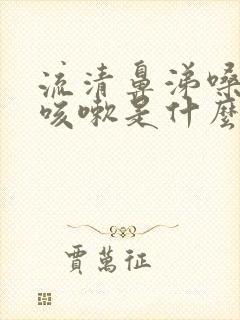 流清鼻涕嗓
咳嗽是什麼
賈萬征